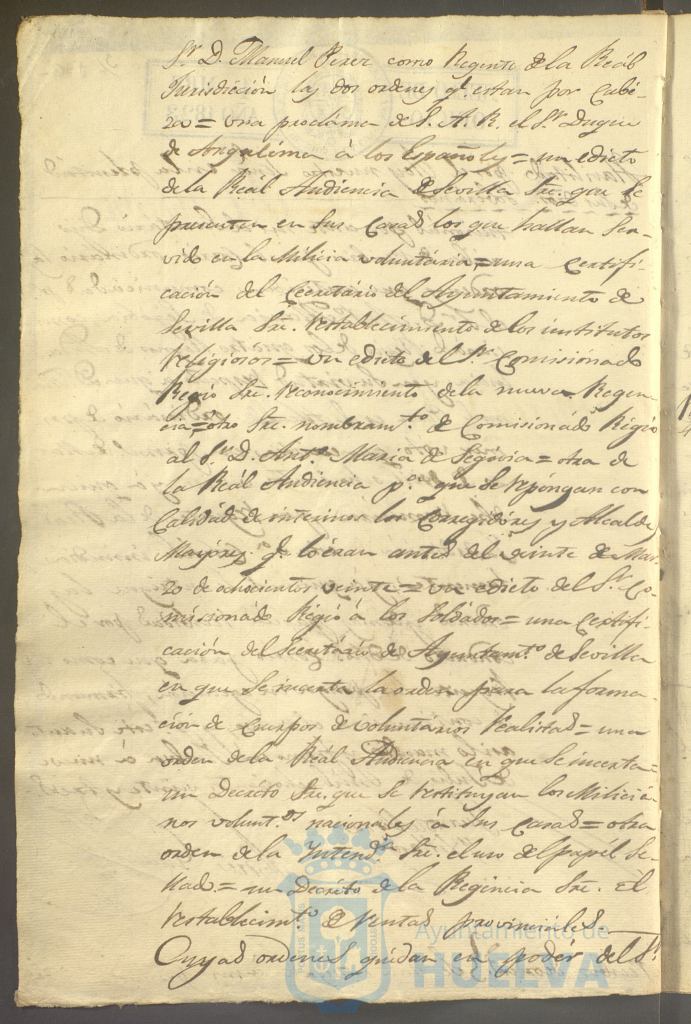 Sr. D. Manuel Perez como Regente de la Real
Jurisdicción las dos ordenes q.e estan por Cabe-
za = una proclama de S. A. R. el Sr. Duque
de Angulema á los Españoles = un edicto
de la Real Audiencia de Sevilla Sre. que se
presenten en sus Casas los que hallan ser-
vido en la Milicia voluntaria = una Certifi-
cacion del Secretario del Ayuntamiento de
Sevilla Sre. restablecimiento de los institutos
religiosos = un edicto del Sr. Comisionado
Regio Sre. reconocimiento de la nueva Regen-
cia = otro Sre. nombramt.o de Comisionado Regio
al Sr. D. Ant.o Maria de Segovia = otra de
la Real Audiencia p.a que se repongan con
Calidad de interinos los Corregidores y Alcaldes
Mayores q.e lo eran antes del siete de Mar-
zo de ochocientos veinte = un edicto del Sr. Co-
misionado Regio á los Soldados = una Certifi-
cación del Secretario de Ayuntamt.o de Sevilla
en que se incerta la orden para la forma-
cion de Cuerpos de voluntarios realistas = una
orden de la Real Audiencia en que se incerta =
un Decreto Sre. que se restituyan los Milicia-
nos volunt.os nacionales á sus Casas = otra
orden de la Intend.a Sre. el uso del papel Se-
llado = un Decreto de la Regencia Sre. El
restablecimt.o de rentas provinciales.
Cuyas ordenes quedan en poder del Sr.
Ayuntamiento de
HUELVA